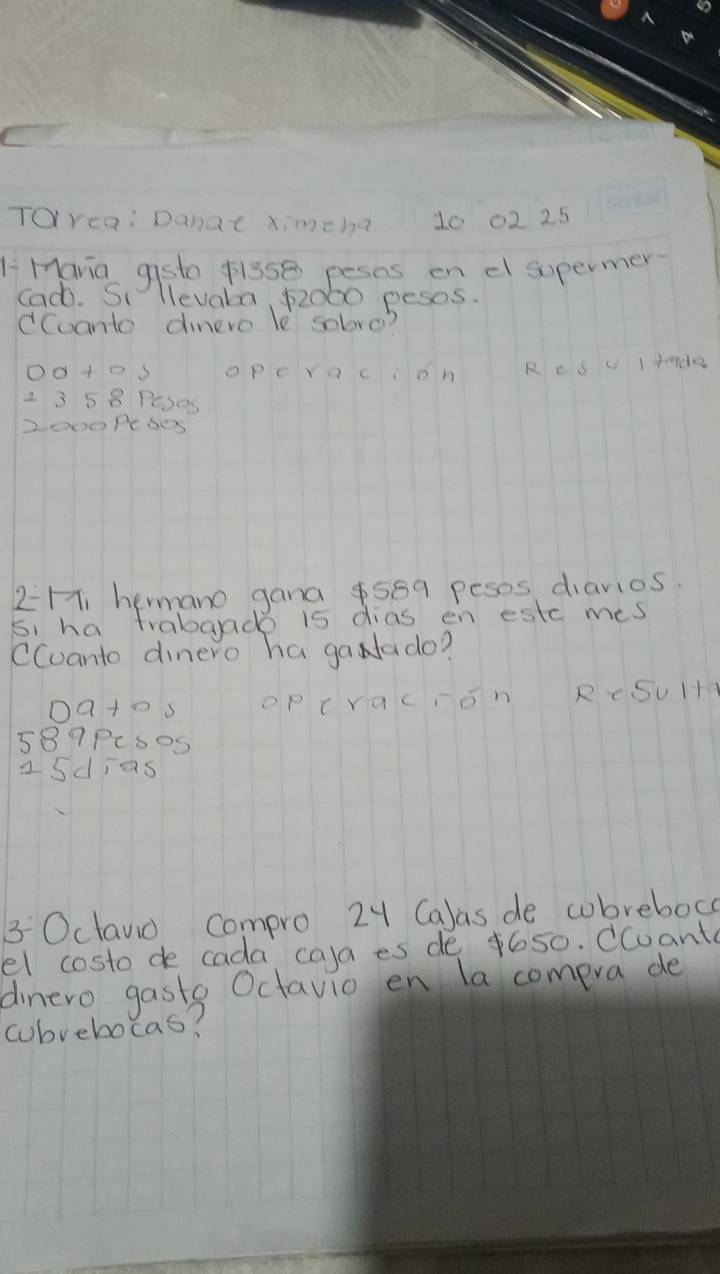 Tarea: Danae Ximena 10 02 25
1- Maria gasto $1358 pesos en el supermer-
cado. Si llevaba $2000 pesos.
¿Cuanto dinero le sobro?
Datos operación Resultado
1358 Pesos
2000 Pesos
2- Mi hermano gana $589 pesos diarios.
Si ha trabajado 15 dias en este mes
¿Cuanto dinero ha gastado?
Datos operación Result
589 Pesos
15 dias
3- Octavio compro 24 Cajas de cobreboca
el costo de cada caja es de $650. ¿Cuanto
dinero gasto Octavio en la compra de
cubrebocas?
7
4
5